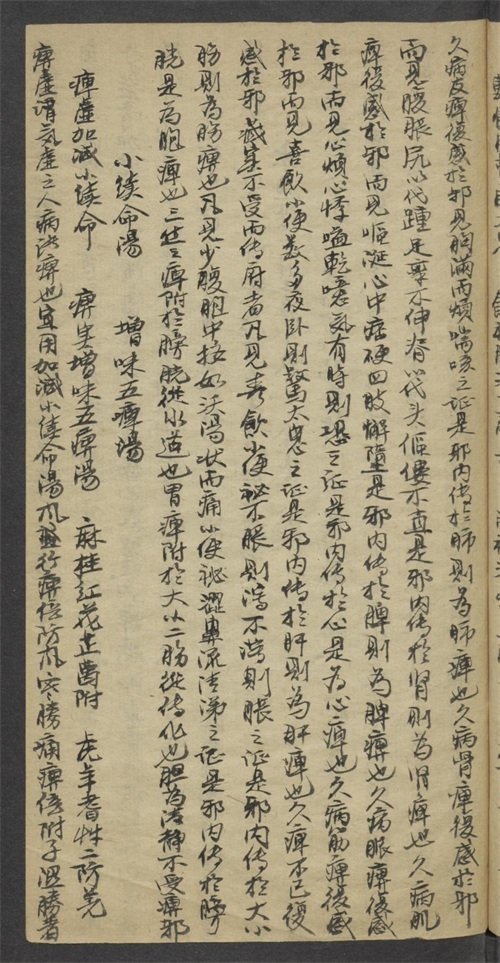 久病皮痺復感於邪見胸滿而煩喘咳之证是邪内傳於肺則為肺痺也久病骨痺復感於邪
而見腹脹尻以代踵足攣不伸脊以代头傴僂不直是邪内傳於腎則為腎痺也久病肌
痺復感於邪而見嘔涎心中痞硬四肢懈墮是邪内傳於脾則為脾痺也久病脈痺復感
於邪而見心煩心悸嗌乾噫气有時則恐之证是邪内傳於心是為心痺也久病筋痺復感
於邪而見喜飲小便數多夜卧則驚太息之证是邪内傳於肝則為肝痺也久痺不已復
感於邪藏実不受而傳府者凡見喜飲小便秘不脹則瀉不瀉則脹之证是邪内傳於大小
腸則為腸痺也凡見少腹胞中按如沃湯状而痛小便秘澀鼻流清涕之证是邪内傳於膀
胱是為胞痺也三焦之痺附於膀胱從水道也胃痺附於大小二腸從傳化也胆為清静不受痺邪
小續命湯 增味五痺湯
痺虛加减小續命 痺実增味五痺湯 麻桂紅花芷葛附 虎羊耆草二防羌
痺虛謂气虛之人病諸痺也宜用加减小續命湯風勝行痺倍防風寒勝痛痺倍附子湿勝著